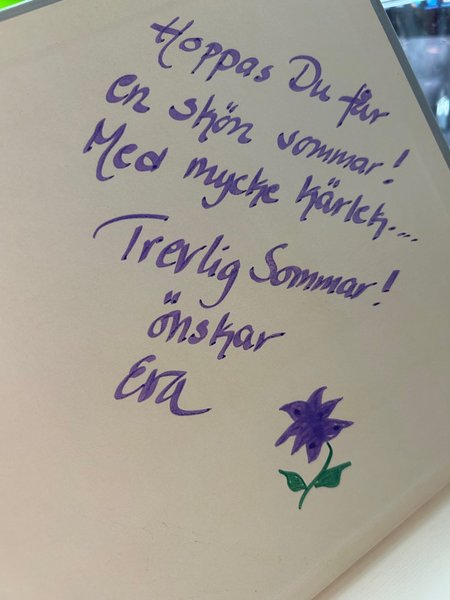 Hoppas Du får
en skön sommar!
Med mycke kärlek....
Trevlig Sommar!
önskar
Eva